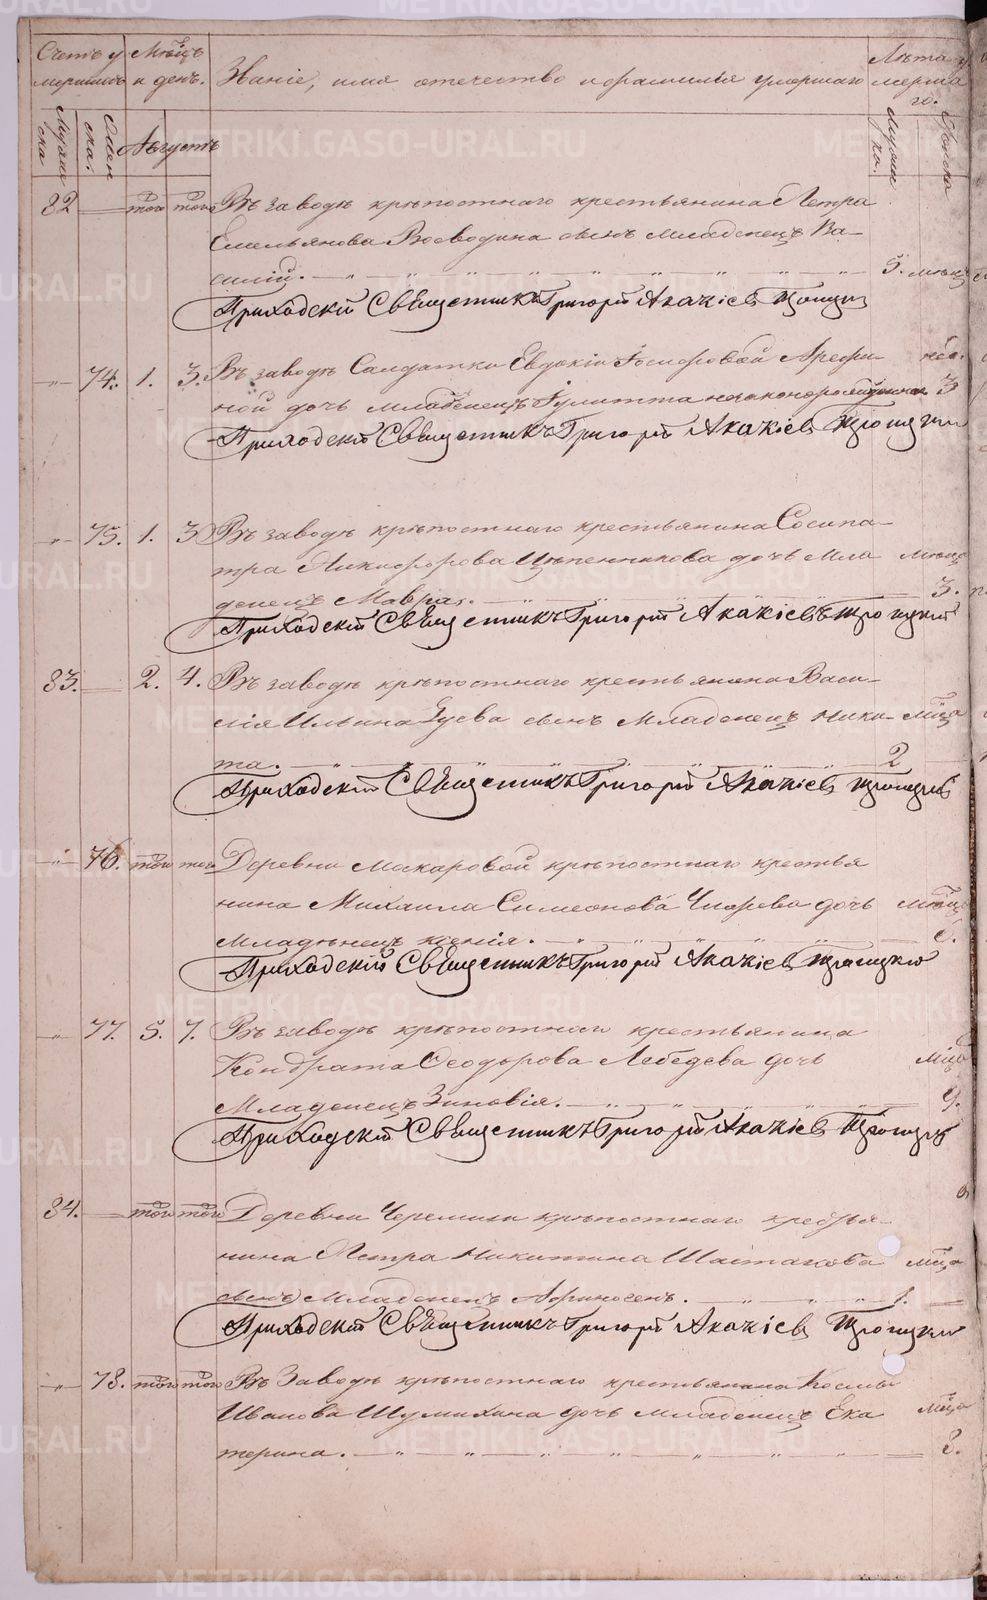 Счетъ у
мершихъ
Мѣсяцъ
и день.
Званіе, имя отечество и фамилья умершаго
Лѣта у
мерша
го.
Мужеска
Женска.
Августъ
Мужеска.
Женска
82 — того того Въ заводѣ крѣпостнаго крестьянина Петра
Емельянова Воеводина сынъ младенецъ Ва-
силій. 5. мѣсяц
Приходскій Священникъ Григорій Акакіевъ Троицкій
— 74. 1. 3. Въ заводѣ Салдатки Евдокіи Арефи-
ной дочь младенецъ Гулитта незаконорожденная 3
Приходскій Священникъ Григорій Акакіевъ Троицкій
— 75. 1. 3 Въ заводѣ крѣпостнаго крестьянина Сосипа-
тра Никифорова дочь мла
денецъ Мавра. 3.
Приходскій Священникъ Григорій Акакіевъ Троицкій
83. — 2. 4. Въ заводѣ крѣпостнаго крестьянина Васи-
лія Ильина Гуева сынъ младенецъ Ники- мѣсяца
та. 2
Приходскій Священникъ Григорій Акакіевъ Троицкій
— 76. того того Деревни Макаровой крѣпостнаго крестья
нина Михаила Симеонова дочь
младѣнецъ Ксенія.
Приходскій Священникъ Григорій Акакіевъ Троицкій
— 77. 5. 7. Въ заводѣ крѣпостнаго крестьянина
Кондрата Ѳеодорова Лебедева дочь
младенецъ Зиновія. 9.
Приходскій Священникъ Григорій Акакіевъ Троицкій
84. — того того Деревни Черемши крѣпостнаго крестья-
нина Петра Никитина
сынъ младенецъ 1.
Приходскій Священникъ Григорій Акакіевъ Троицкій
— 78. того того Въ Заводѣ крѣпостнаго крестьянина Космы
Иванова Шумихина дочь младенецъ Ека
терина.
METRIKI.GASO-URAL.RU